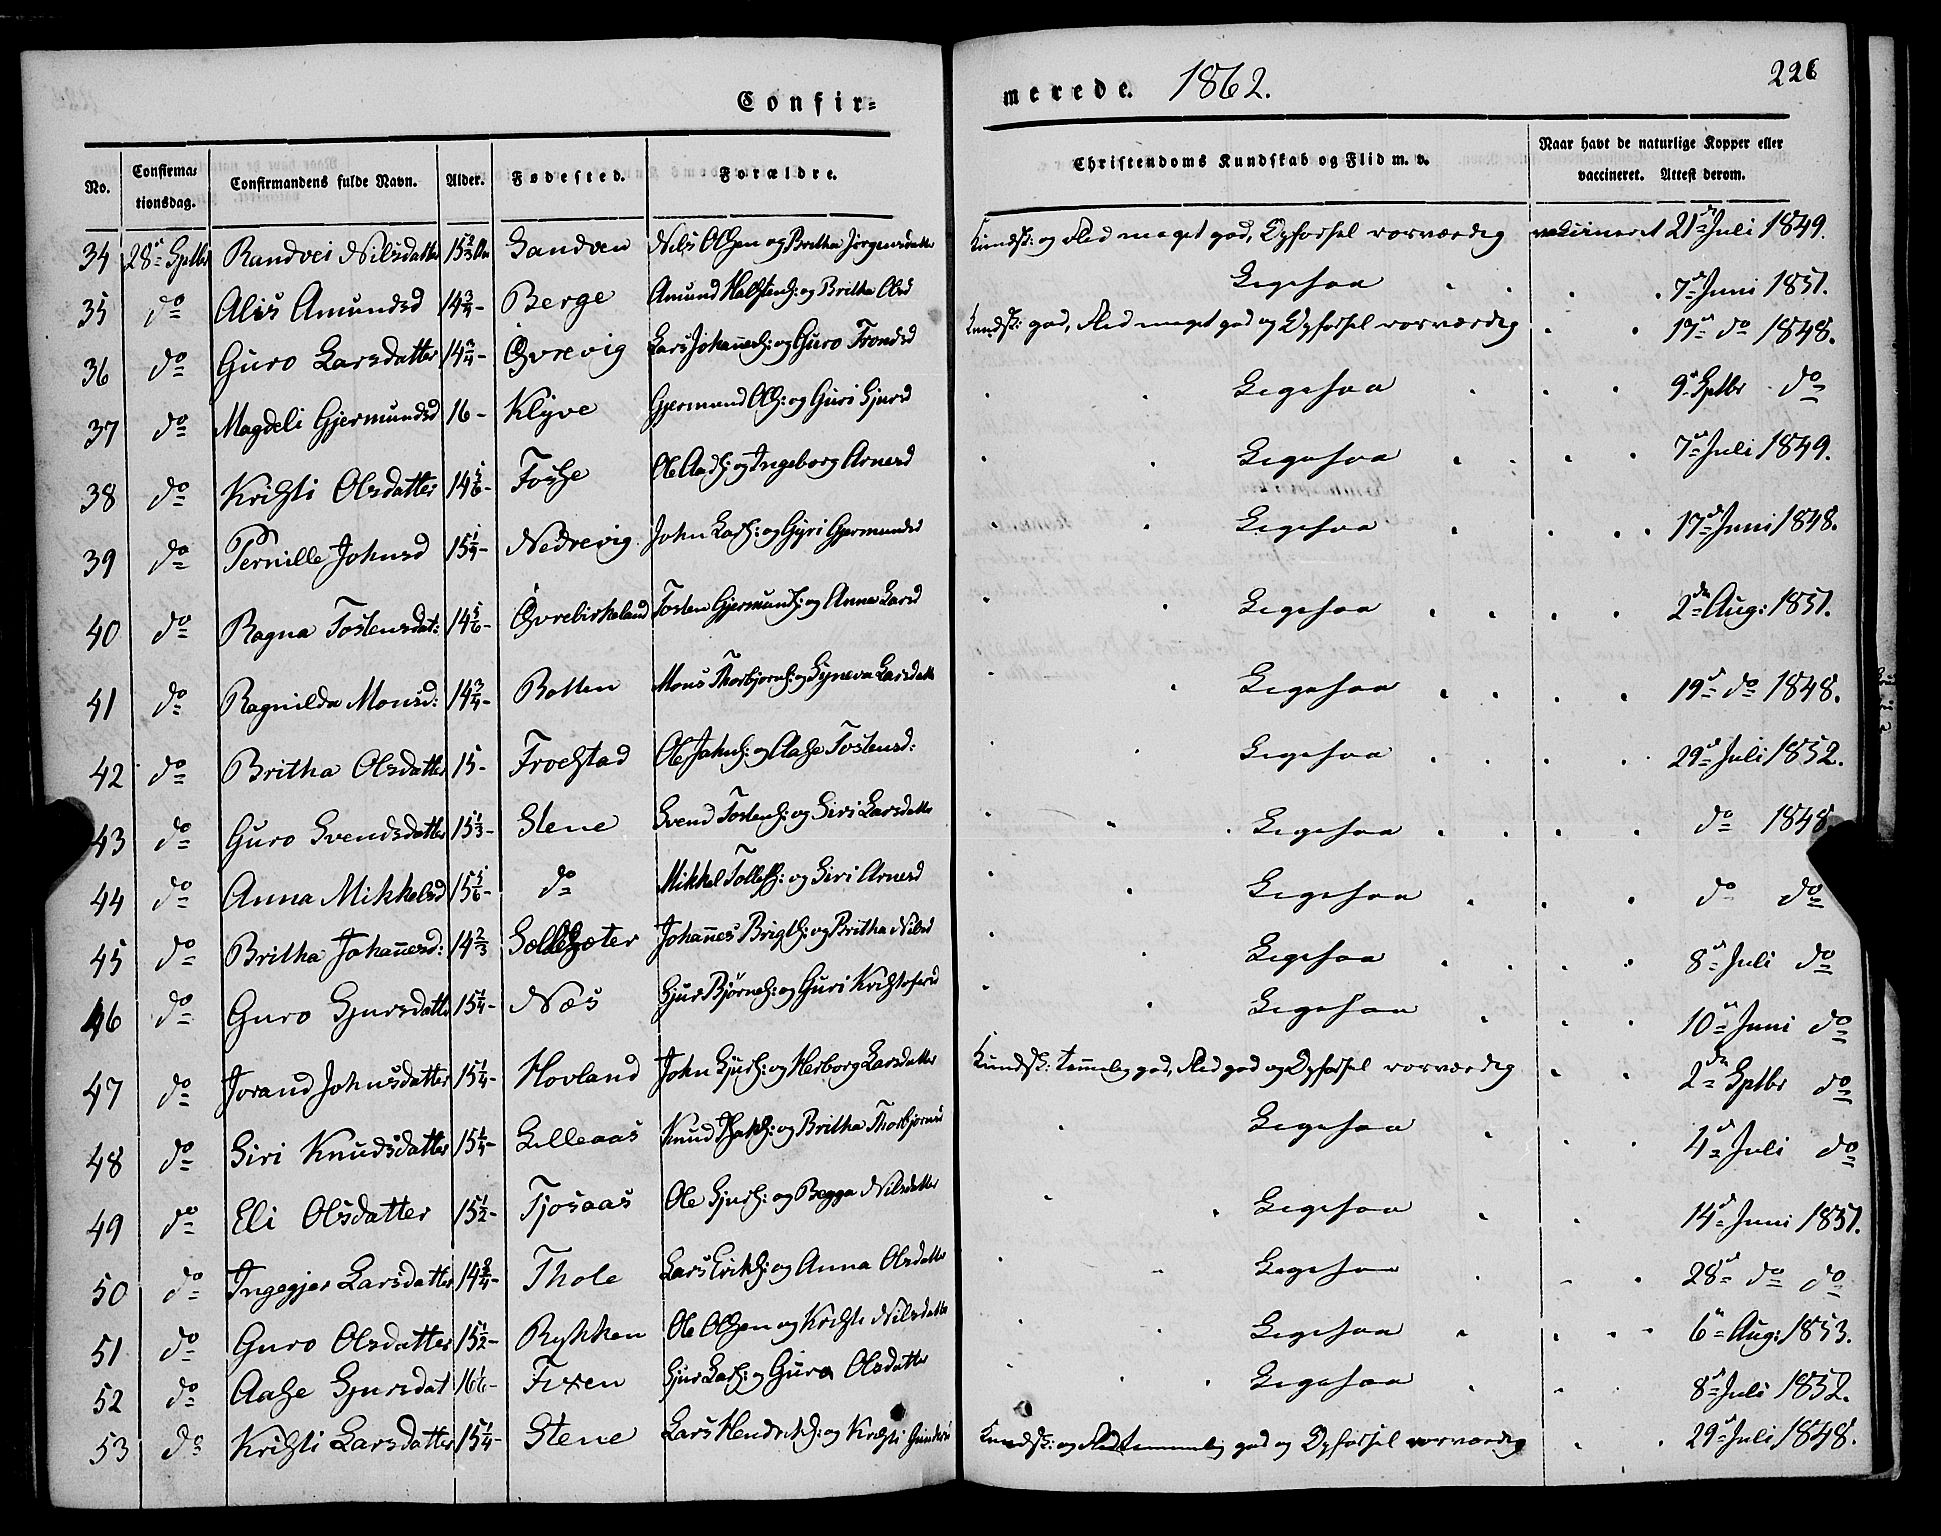 Confir=
merede. 1862.
226
No. Confirmationsdag. Confirmandens fulde Navn. Alder. Fødested. Forældre. Christendoms Kundskab og Flid m. v. Naar havt de naturlige Kopper eller vaccineret. Attest derom.
34 28de Sptbr Randvei Nilsdatter 15 2/3 Aar Sandven Nils Olsen og Britha Jörgensdatter Kundsk: og Flid meget god, Opförsel rosværdig vakcineret 21de Juli 1849.
35 do Alis Amundsd 14 3/4 - Berge Amund Halstens: og Britha Olsd Ligesaa 7de Juni 1851.
36 do Guro Larsdatter 14 3/4 - Övrevig Lars Johannes: og Guro Trondsd Kundsk: god, Flid meget god og Opförsel rosværdig 17de do 1848.
37 do Magdeli Gjermundsd 16 - Klyve Gjermund Ols: og Guri Sjursd Ligesaa 9de Sptbr do
38 do Kristi Olsdatter 14 5/6 - Fosse Ole Aads: og Ingeborg Arnesd Ligesaa 7de Juli 1849.
39 do Pernille Johnsd 15 1/4 - Nedrevig John Lars: og Gyri Gjermundsd Ligesaa 17de Juni 1848.
40 do Ragna Tostensdat: 14 5/6 - Övrebirkeland Tosten Gjermunds: og Anna Larsd Ligesaa 2den Aug: 1851.
41 do Ragnilda Monsd: 14 3/4 - Botten Mons Thorbjörns: og Syneva Larsdatter Ligesaa 19de do 1848.
42 do Britha Olsdatter 15 - Froestad Ole Johns: og Aase Tostensd: Ligesaa 29de Juli 1852.
43 do Guro Svendsdatter 15 1/3 - Stene Svend Tostens: og Siri Larsdatter Ligesaa do 1848
44 do Anna Mikkelsd 15 5/6 - do Mikkel Tolles: og Siri Arnesd Ligesaa do do
45 do Britha Johannesd: 14 2/3 Johannes Brigts: og Britha Nilsd Ligesaa 8de Juli do
46 do Guro Sjursdatter 15 1/4 - Næs Sjur Björns: og Guri Kristofersd Ligesaa 10de Juni do
47 do Jorand Johnsdatter 15 1/4 - Hovland John Sjurs: og Herborg Larsdatter Kundsk: temmelig god, Flid god og Opförsel rosværdig 2den Sptbr do
48 do Siri Knudsdatter 15 1/4 - Lilleaas Knud og Britha Thorbjörnsd Ligesaa 4de Juli do
49 do Eli Olsdatter 15 1/2 - Tjosaas Ole Sjurs: og Bægga Nilsdatter Ligesaa 14de Juni 1851.
50 do Ingegjer Larsdatter 14 3/4 - Thole Lars Eriks: og Anna Olsdatter Ligesaa 28de do do
51 do Guro Olsdatter 15 1/2 - Rykken Ole Olsen og Kristi Nilsdatter Ligesaa 6te Aug: 1853.
52 do Aase Sjursdat 16 1/6 - Fixen Sjur Lars: og Guro Olsdatter Ligesaa 8de Juli 1852.
53 do Kristi Larsdatter 15 1/4 - Stene Lars Hendriks: og Kristi Kundsk: og Flid temmelig god og Opförsel rosværdig 29de Juli 1848.